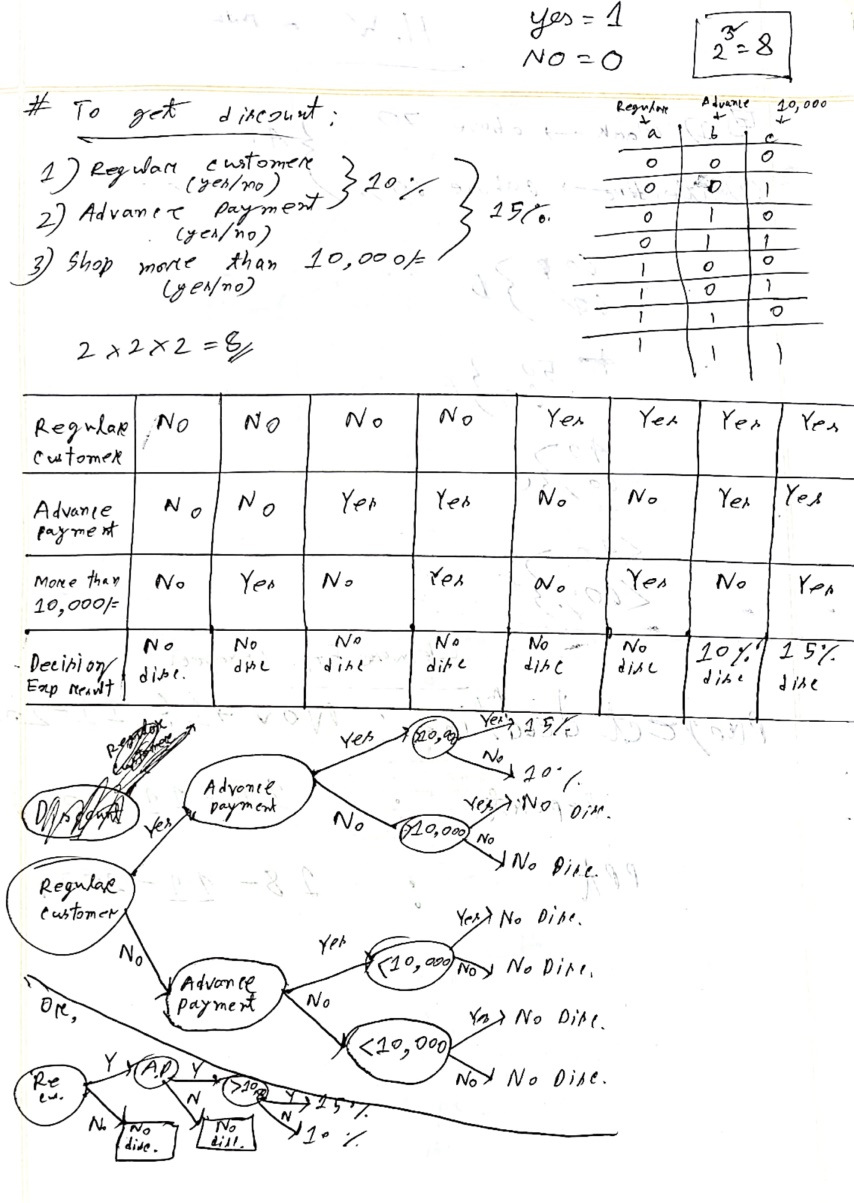 yes = 1
NO = 0
2³ = 8
# To get discount:
1) Regular customer (yes/no) } 10%
2) Advance payment (yes/no)
3) Shop more than 10,000/= (yes/no)
} 15%.
2 × 2 × 2 = 8
Regular Advance 10,000
a b c
0 0 0
0 0 1
0 1 0
0 1 1
1 0 0
1 0 1
1 1 0
1 1 1
Regular customer No No No No Yes Yes Yes Yes
Advance payment No No Yes Yes No No Yes Yes
More than 10,000/= No Yes No Yes No Yes No Yes
Decision/Exp result No disc. No disc No disc No disc No disc No disc 10% disc 15% disc
Regular customer
Discount
Yes
Advance payment
Yes
>10,00
Yes 15%
No 10%
No
>10,000
Yes No Disc.
No No Disc.
Regular customer
No
Advance payment
Yes
<10,000
Yes No Disc.
No No Disc.
No
<10,000
Yes No Disc.
No No Disc.
Or,
Re cu.
Y A.P Y >10 Y 15%
N 10%
N No disc.
No No disc.